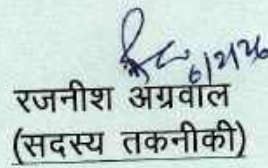 6/2/26
रजनीश अग्रवाल
(सदस्य तकनीकी)